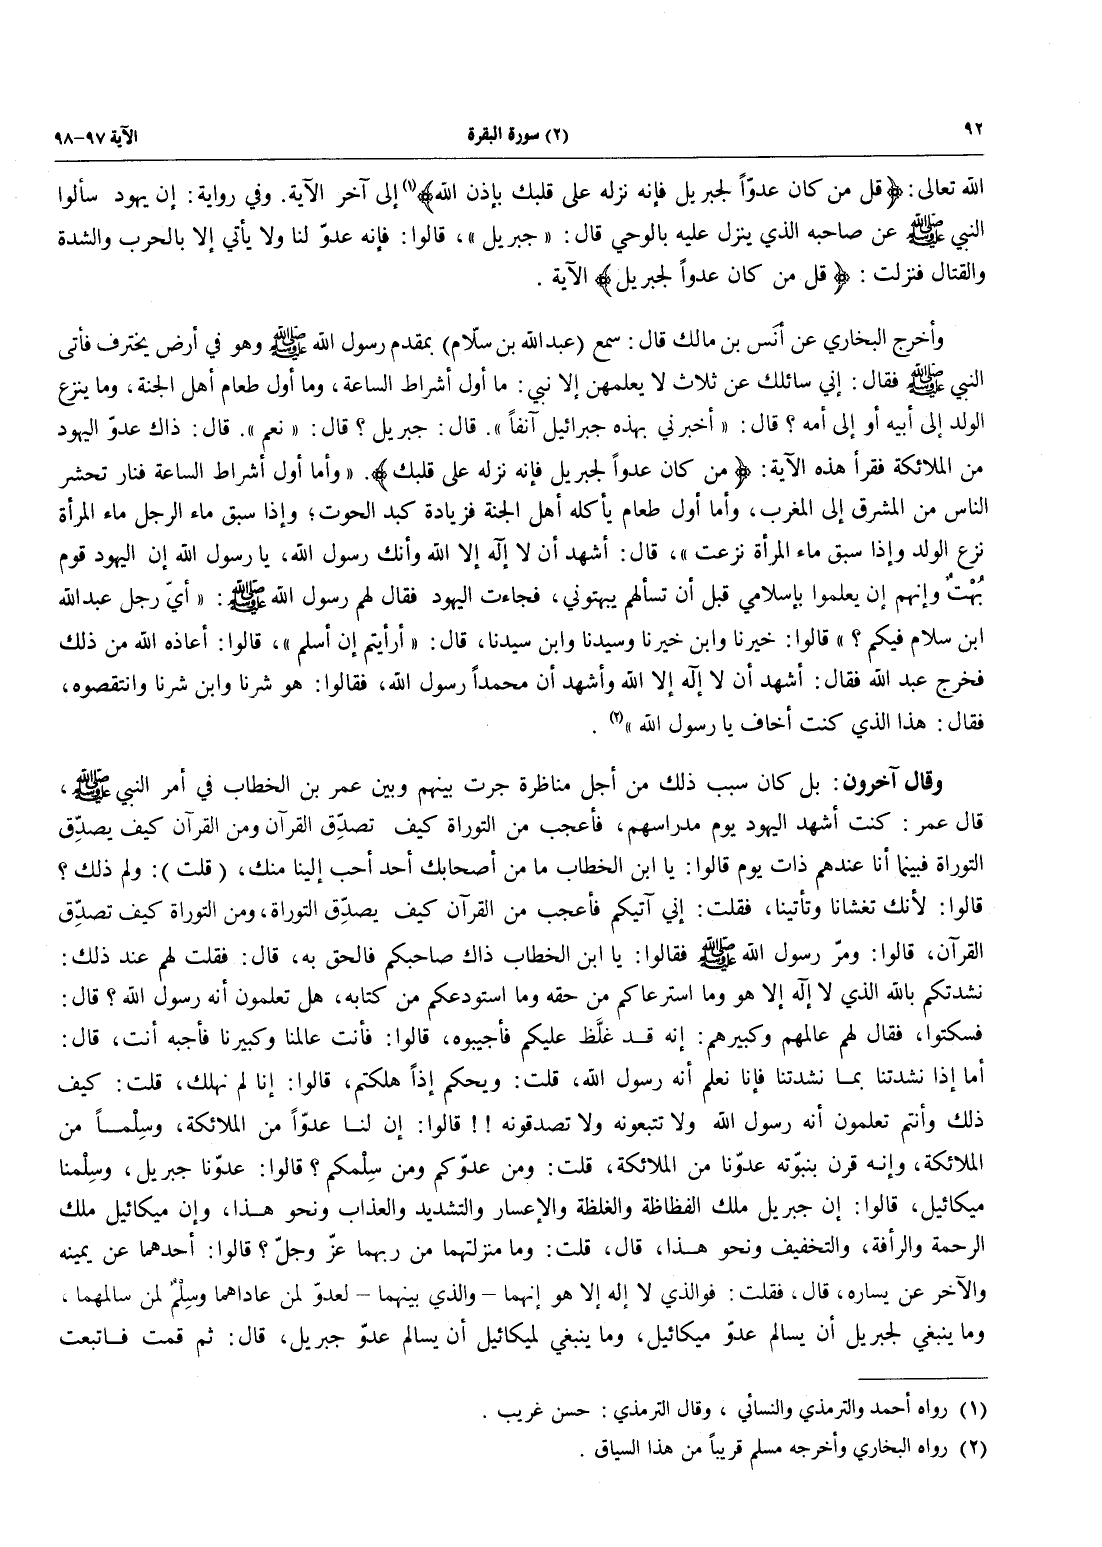 ٩٢ (٢) سورة البقرة الآية ٩٧-٩٨
الله تعالى: ﴿قل من كان عدوّاً لجبريل فإنه نزله على قلبك بإذن الله﴾(١) إلى آخر الآية. وفي رواية: إن يهود سألوا
النبي ﷺ عن صاحبه الذي ينزل عليه بالوحي قال: « جبريل »، قالوا: فإنه عدوّ لنا ولا يأتي إلا بالحرب والشدة
والقتال فنزلت : ﴿ قل من كان عدواً لجبريل﴾ الآية .
وأخرج البخاري عن أنَس بن مالك قال: سمع (عبدالله بن سلّام) بمقدم رسول الله ﷺ وهو في أرض يخترف فأتى
النبي ﷺ فقال: إني سائلك عن ثلاث لا يعلمهن إلا نبي: ما أول أشراط الساعة، وما أول طعام أهل الجنة، وما ينزع
الولد إلى أبيه أو إلى أمه ؟ قال: « أخبرني بهذه جبرائيل آنفاً ». قال: جبريل ؟ قال: « نعم ». قال: ذاك عدوّ اليهود
من الملائكة فقرأ هذه الآية: ﴿ من كان عدواً لجبريل فإنه نزله على قلبك﴾. « وأما أول أشراط الساعة فنار تحشر
الناس من المشرق إلى المغرب، وأما أول طعام يأكله أهل الجنة فزيادة كبد الحوت؛ وإذا سبق ماء الرجل ماء المرأة
نزع الولد وإذا سبق ماء المرأة نزعت »، قال: أشهد أن لا إلّه إلا الله وأنك رسول الله، يا رسول الله إن اليهود قوم
بُهْتٌ وإنهم إن يعلموا بإسلامي قبل أن تسألهم يبهتوني، فجاءت اليهود فقال لهم رسول الله ﷺ: « أيّ رجل عبدالله
ابن سلام فيكم ؟ » قالوا: خيرنا وابن خيرنا وسيدنا وابن سيدنا، قال: « أرأيتم إن أسلم »، قالوا: أعاذه الله من ذلك
فخرج عبد الله فقال: أشهد أن لا إلّه إلا الله وأشهد أن محمداً رسول الله، فقالوا: هو شرنا وابن شرنا وانتقصوه،
فقال: هذا الذي كنت أخاف يا رسول الله »(٢) .
وقال آخرون: بل كان سبب ذلك من أجل مناظرة جرت بينهم وبين عمر بن الخطاب في أمر النبي ﷺ،
قال عمر : كنت أشهد اليهود يوم مدراسهم، فأعجب من التوراة كيف تصدِّق القرآن ومن القرآن كيف يصدِّق
التوراة فبينما أنا عندهم ذات يوم قالوا: يا ابن الخطاب ما من أصحابك أحد أحب إلينا منك، ( قلت ): ولم ذلك ؟
قالوا: لأنك تغشانا وتأتينا، فقلت: إني آتيكم فأعجب من القرآن كيف يصدِّق التوراة، ومن التوراة كيف تصدِّق
القرآن، قالوا: ومرّ رسول الله ﷺ فقالوا: يا ابن الخطاب ذاك صاحبكم فالحق به، قال: فقلت لهم عند ذلك:
نشدتكم بالله الذي لا إلّه إلا هو وما استرعاكم من حقه وما استودعكم من كتابه، هل تعلمون أنه رسول الله ؟ قال:
فسكتوا، فقال لهم عالمهم وكبيرهم: إنه قـد غلَّظ عليكم فأجيبوه، قالوا: فأنت عالمنا وكبيرنا فأجبه أنت، قال:
أما إذا نشدتنا بمـا نشدتنا فإنا نعلم أنه رسول الله، قلت: ويحكم إذاً هلكتم، قالوا: إنا لم نهلك، قلت: كيف
ذلك وأنتم تعلمون أنه رسول الله ولا تتبعونه ولا تصدقونه !! قالوا: إن لنـا عدوّاً من الملائكة، وسِلْمـاً من
الملائكة، وإنـه قرن بنبوّته عدوّنا من الملائكة، قلت: ومن عدوّكم ومن سِلْمكم ؟ قالوا: عدوّنا جبريل، وسِلْمنا
ميكائيل، قالوا: إن جبريل ملك الفظاظة والغلظة والإعسار والتشديد والعذاب ونحو هـذا، وإن ميكائيل ملك
الرحمة والرأفة، والتخفيف ونحو هـذا، قال، قلت: وما منزلتهما من ربهما عزّ وجلّ ؟ قالوا: أحدهما عن يمينه
والآخر عن يساره، قال، فقلت: فوالذي لا إله إلا هو إنهما - والذي بينهما - لعدوّ لمن عاداهما وسِلْمٌ لمن سالمهما ،
وما ينبغي لجبريل أن يسالم عدوّ ميكائيل، وما ينبغي لميكائيل أن يسالم عدوّ جبريل، قال: ثم قمت فـاتبعت
(١) رواه أحمد والترمذي والنسائي ، وقال الترمذي : حسن غريب .
(٢) رواه البخاري وأخرجه مسلم قريباً من هذا السياق .